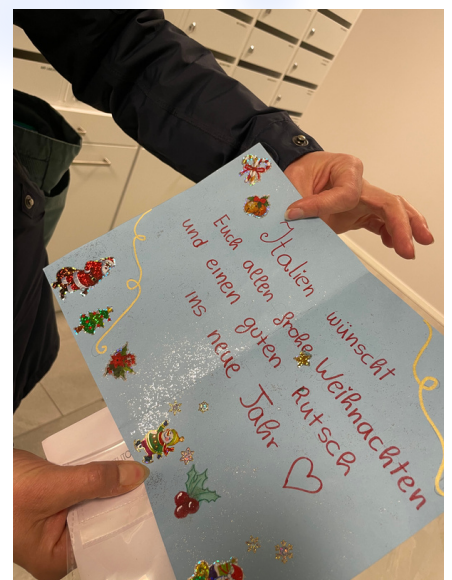 Italien wünscht
Euch allen frohe Weihnachten
und einen guten Rutsch
ins neue Jahr ♡